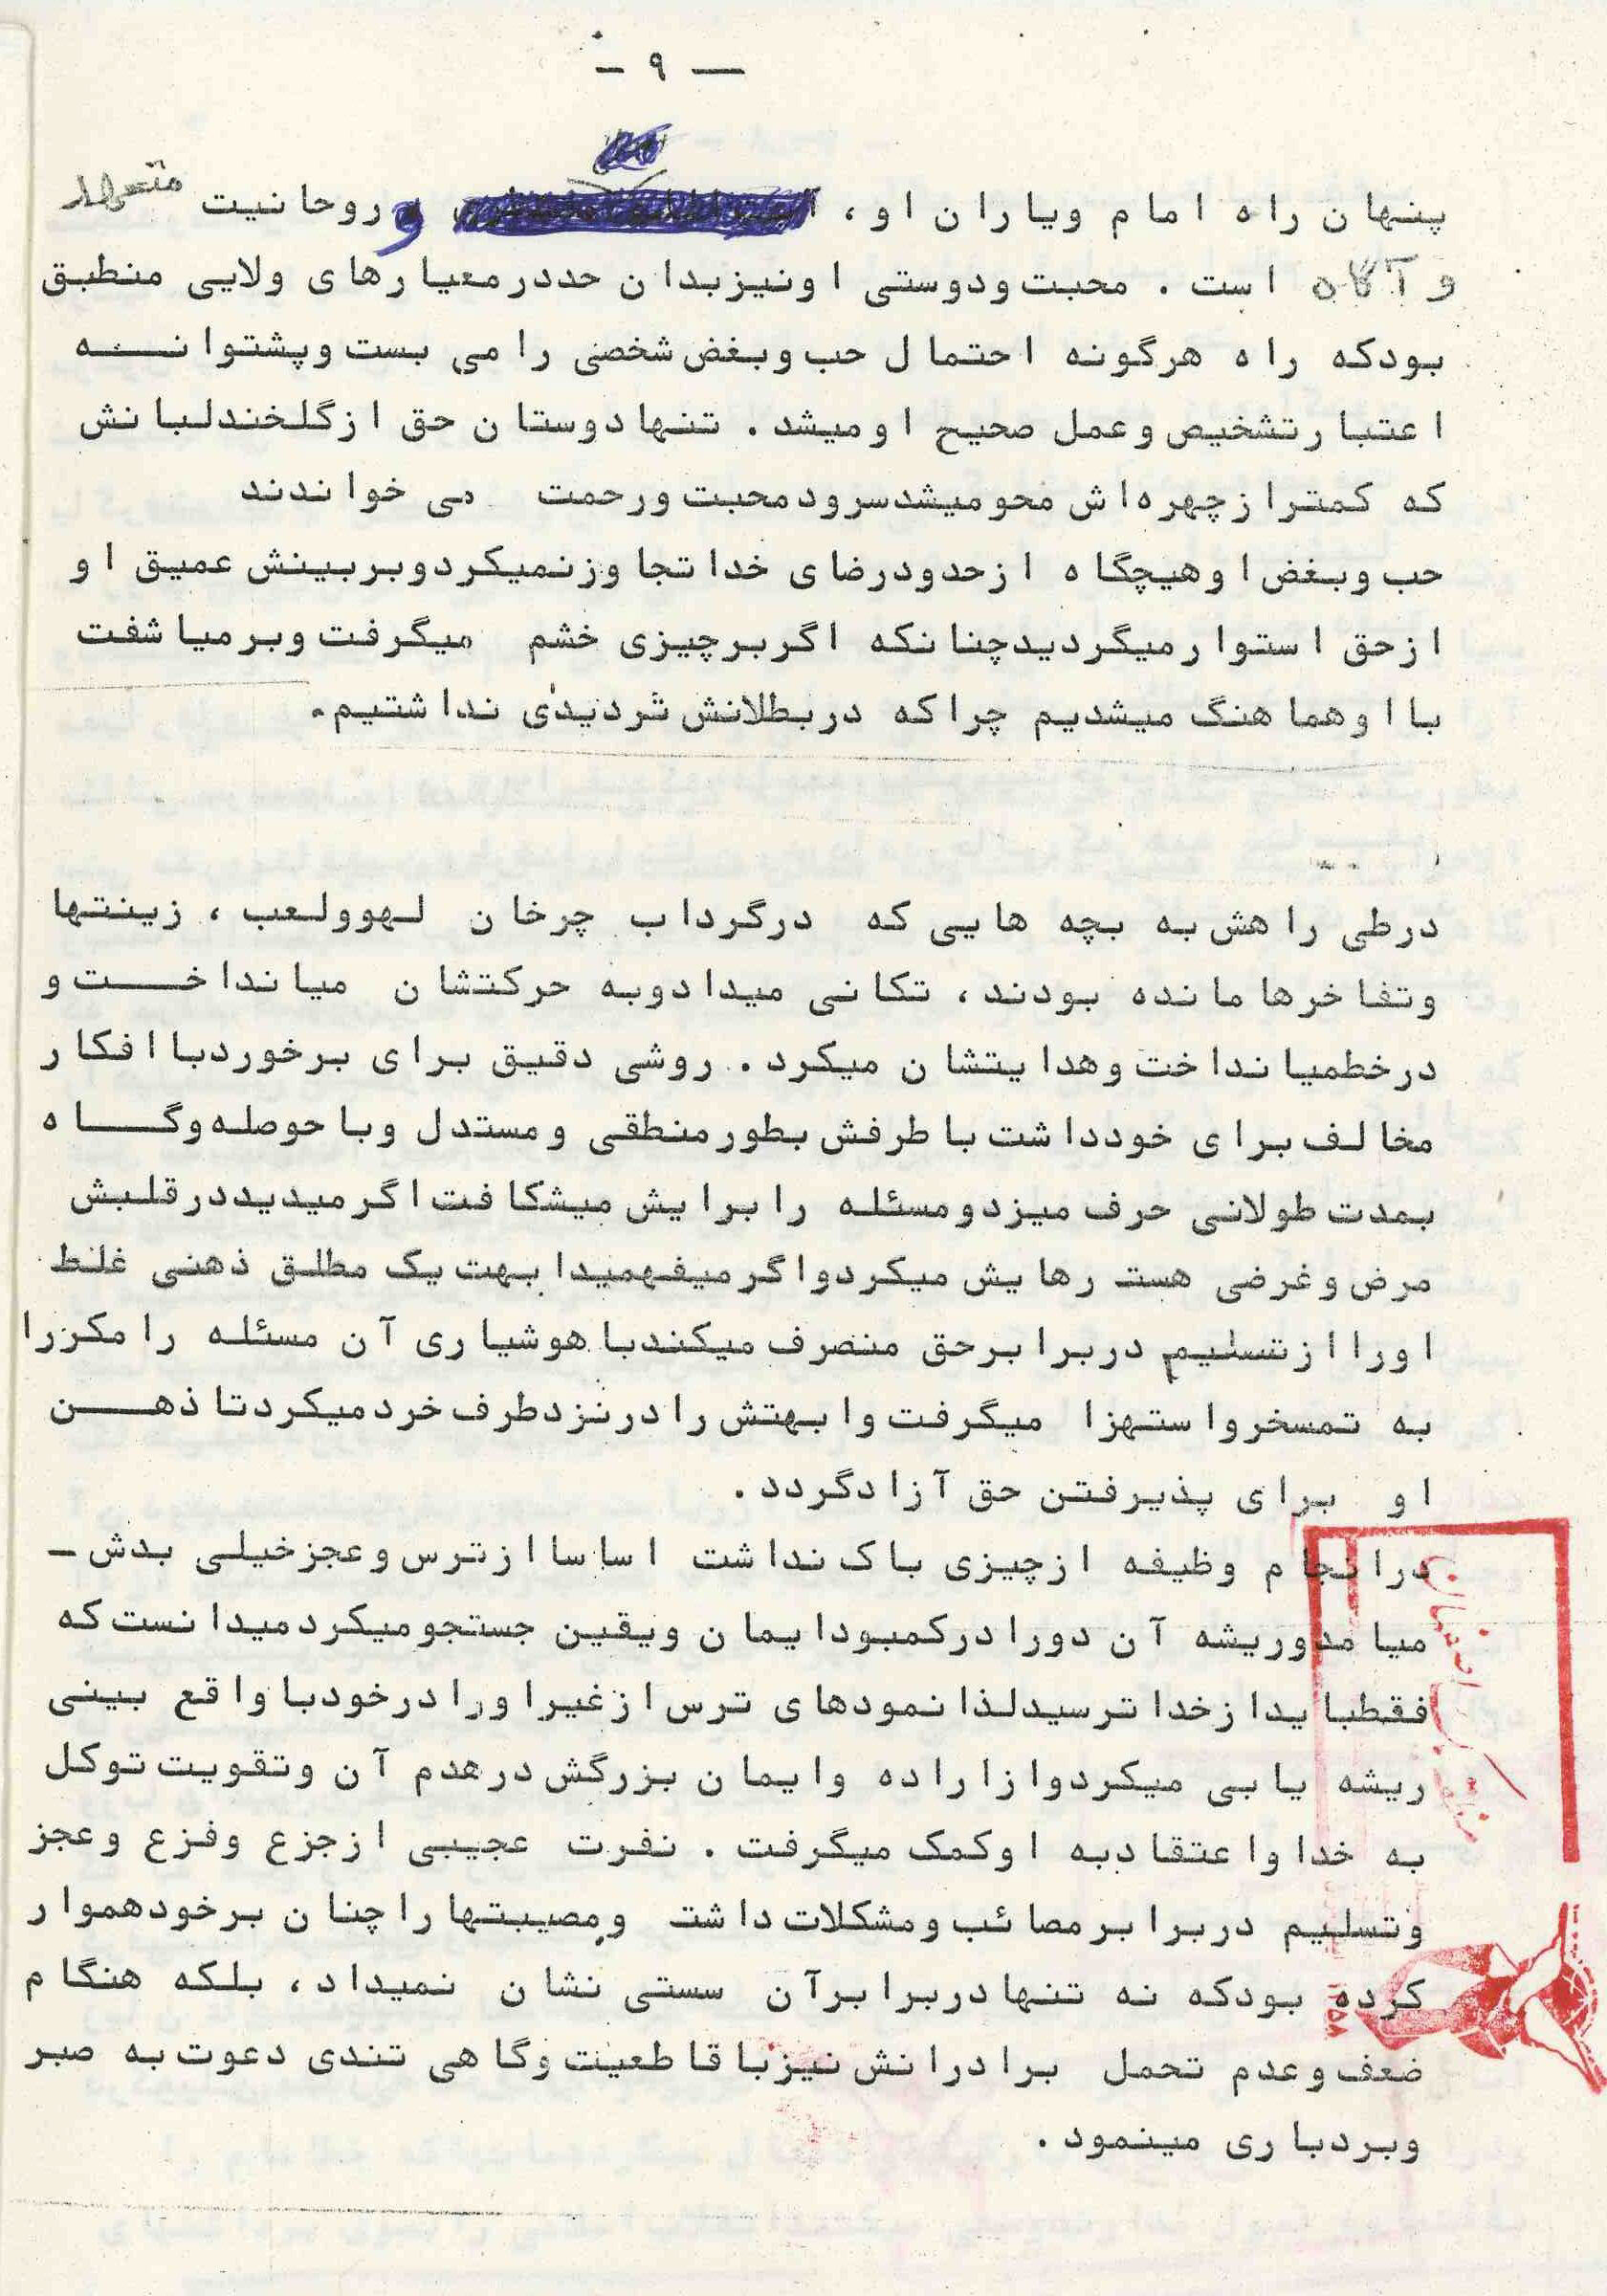 — ۹ —
پنهان راه امام ویاران او، و روحانیت متعهد
و آگاه است. محبت ودوستی اونیزبدان حددرمعیارهای ولایی منطبق
بودکه راه هرگونه احتمال حب وبغض شخصی را می بست وپشتوانه
اعتبارتشخیص وعمل صحیح اومیشد. تنهادوستان حق ازگلخندلبانش
که کمترازچهره‌اش محومیشدسرودمحبت ورحمت می خواندند
حب وبغض اوهیچگاه ازحدودرضای خداتجاوزنمیکردوبربینش عمیق او
ازحق استوارمیگردیدچنانکه اگربرچیزی خشم میگرفت وبرمیاشفت
بااوهماهنگ میشدیم چراکه دربطلانش تردیدی نداشتیم.
درطی راهش به بچه هایی که درگرداب چرخان لهوولعب، زینتها
وتفاخرهامانده بودند، تکانی میدادوبه حرکتشان میانداخت و
درخطمیانداخت وهدایتشان میکرد. روشی دقیق برای برخوردباافکار
مخالف برای خودداشت باطرفش بطورمنطقی ومستدل وباحوصله‌وگاه
بمدت طولانی حرف میزدومسئله رابرایش میشکافت اگرمیدیددرقلبش
مرض وغرضی هست رهایش میکردواگرمیفهمیدابهت یک مطلق ذهنی غلط
اوراازتسلیم دربرابرحق منصرف میکندباهوشیاری آن مسئله رامکررا
به تمسخرواستهزا میگرفت وابهتش رادرنزدطرف خردمیکردتاذهن
او برای پذیرفتن حق آزادگردد.
درانجام وظیفه ازچیزی باک نداشت اساساازترس وعجزخیلی بدش -
میامدوریشه آن دورادرکمبودایمان ویقین جستجومیکردمیدانست که
فقطبایدازخداترسیدلذانمودهای ترس ازغیراورادرخودباواقع بینی
ریشه یابی میکردوازاراده وایمان بزرگش درهدم آن وتقویت توکل
به خداواعتقادبه اوکمک میگرفت. نفرت عجیبی ازجزع وفزع وعجز
وتسلیم دربرابرمصائب ومشکلات داشت ومصیبتهاراچنان برخودهموار
کرده بودکه نه تنهادربرابرآن سستی نشان نمیداد، بلکه هنگام
ضعف وعدم تحمل برادرانش نیزباقاطعیت وگاهی تندی دعوت به صبر
وبردباری مینمود.